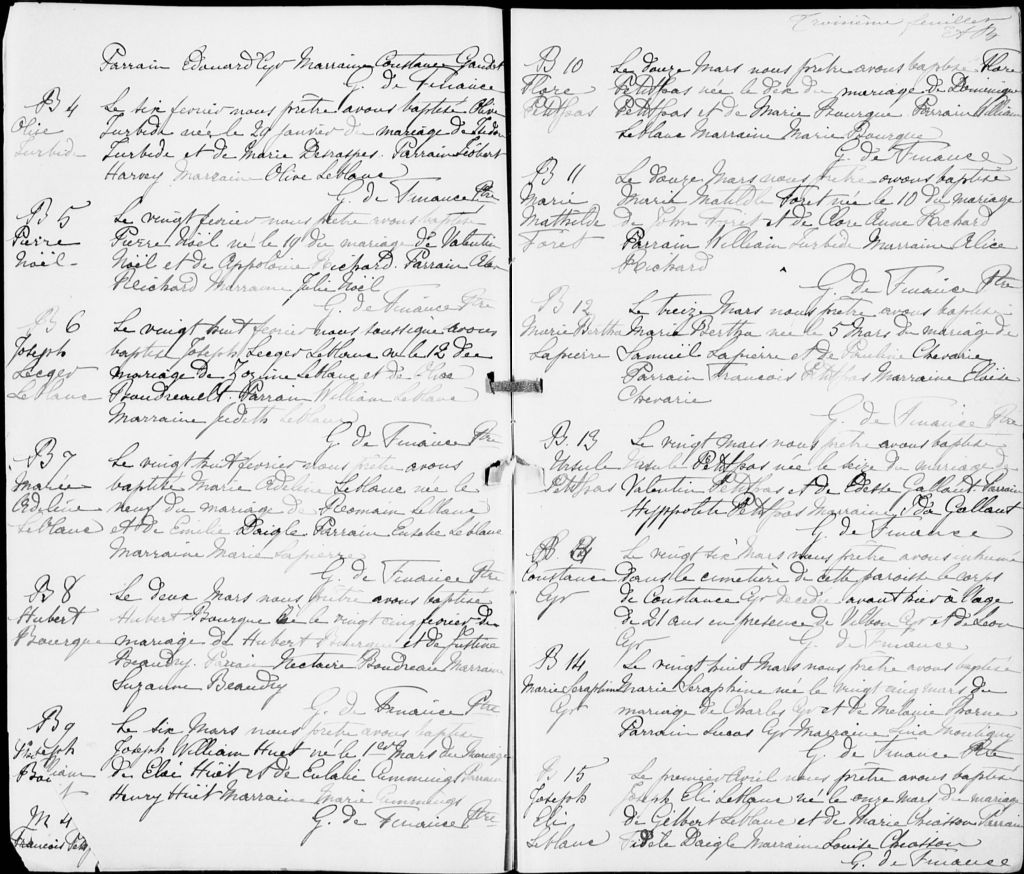 Parrain Edouard Cyr Marraine Constance Gaudet
G. de Finance
B 4
Olive
Turbide
Le six fevrier nous prêtre avous baptisé Olive
Turbide née le 29 janvier du mariage de
Turbide et de Marie Desraspes. Parrain
Harvey Marraine Olive Leblanc
G. de Finance Ptre
B 5
Pierre
Noël-
Le vingt fevrier nous prêtre avous baptisé
Pierre Noël né le 19 du mariage de Valentin
Noël et de Appolonie Richard. Parrain
Richard Marraine Julie Noël
G. de Finance Ptre
B 6
Joseph
Leeger
Leblanc
Le vingt huit fevrier nous soussigné avous
baptisé Joseph Leeger Leblanc né le 12 du
mariage de Leblanc et de Olive
Boudreault. Parrain William Leblanc
Marraine Judith Leblanc
G. de Finance Ptre
B 7
Marie
Adeline
Leblanc
Le vingt huit fevrier nous prêtre avous
baptisé Marie Adeline Leblanc née le
neuf du mariage de Romain Leblanc
et de Emilie Daigle Parrain Eusebe Leblanc
Marraine Marie Lapierre
G. de Finance Ptre
B 8
Hubert
Bourgue
Le deux Mars nous prêtre avous baptisé
Hubert Bourgue né le vingt cinq fevrier du
mariage de Hubert Bourgue et de Justine
Beaudry. Parrain Nectaire Boudreau Marraine
Suzanne Beaudry
G. de Finance Ptre
B 9
Joseph
William
Le six Mars nous prêtre avous baptisé
Joseph William Huet né le 1er Mars du Mariage
de Eloi Huet et de Eulalie Cummings Parrain
Henry Huet Marraine Marie Cummings
G. de Finance Ptre
M 4
Francois
Troisième feuillet
B 10
Flore
Petitpas
Le douze Mars nous prêtre avous baptisé Flore
Petitpas née le dix du mariage de Dominique
Petitpas et de Marie Bourgue. Parrain William
Leblanc Marraine Marie Bourgue
G. de Finance
B 11
Marie
Mathilde
Foret
Le douze Mars nous prêtre avous baptisé
Marie Matilde Foret née le 10 du mariage
de John Foret et de Anne Richard
Parrain William Turbide Marraine Alice
Richard
G. de Finance Ptre
B 12
Marie Bertha
Lapierre
Le treize Mars nous prêtre avous baptisé
Marie Bertha née le 5 Mars du mariage de
Samuël Lapierre et de Pauline Chevarie
Parrain Francois Petitpas Marraine Eloïse
Chevarie
G. de Finance Ptre
B. 13
Ursule
Petitpas
Le vingt Mars nous prêtre avous baptisé
Ursule Petitpas née le seize du mariage de
Valentin Petitpas et de Edesse Gallant. Parrain
Hyppolite Petitpas Marraine Ida Gallant
G. de Finance
Constance
Cyr
Le vingt six Mars nous prêtre avous inhumé
dans le cimetière de cette paroisse le corps
de Constance Cyr decedée avant hier à l'age
de 21 ans en presence de Vilbon Cyr et de Leon
Cyr
G. de Finance
B 14
Marie Seraphine
Cyr
Le vingt huit Mars nous prêtre avous baptisé
Marie Seraphine née le vingt cinq mars du
mariage de Charles Cyr et de Melanie
Parrain Lucas Cyr Marraine Lina Montigny
G. de Finance Ptre
B 15
Joseph
Eli
Leblanc
Le premier Avril nous prêtre avous baptisé
Joseph Eli Leblanc né le onze mars du mariage
de Gilbert Leblanc et de Marie Chiasson Parrain
Fidèle Daigle Marraine Louise Chiasson
G. de Finance